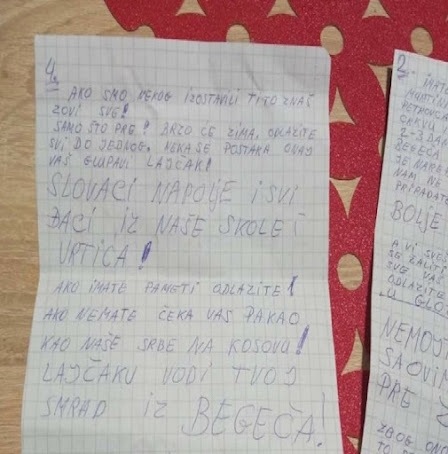 4.
AKO SMO NEKOG IZOSTAVILI TI TO ZNAŠ
ZOVI SVE!
SAMO ŠTO PRE! BRZO ĆE ZIMA, ODLAZITE
SVI DO JEDNOG, NEKA SE POSTARA ONAJ
VAŠ GLUPAVI LAJČAK!
SLOVACI NAPOLJE I SVI
ĐACI IZ NAŠE SKOLE I
VRTIĆA!
AKO IMATE PAMETI ODLAZITE!
AKO NEMATE ČEKA VAS PAKAO
KAO NAŠE SRBE NA KOSOVU!
LAJČAKU VODI TVOJ
SMRAD IZ BEGEČA!
2.
IMATE
PETROVCA
CRKVU
2-3
BEGEČA
NAM NE
PRIPADATE
BOLJE
A VI
SVE VAS
ODLAZITE
NEMOJ
SA OVIM
PRE
ZBOG ONO